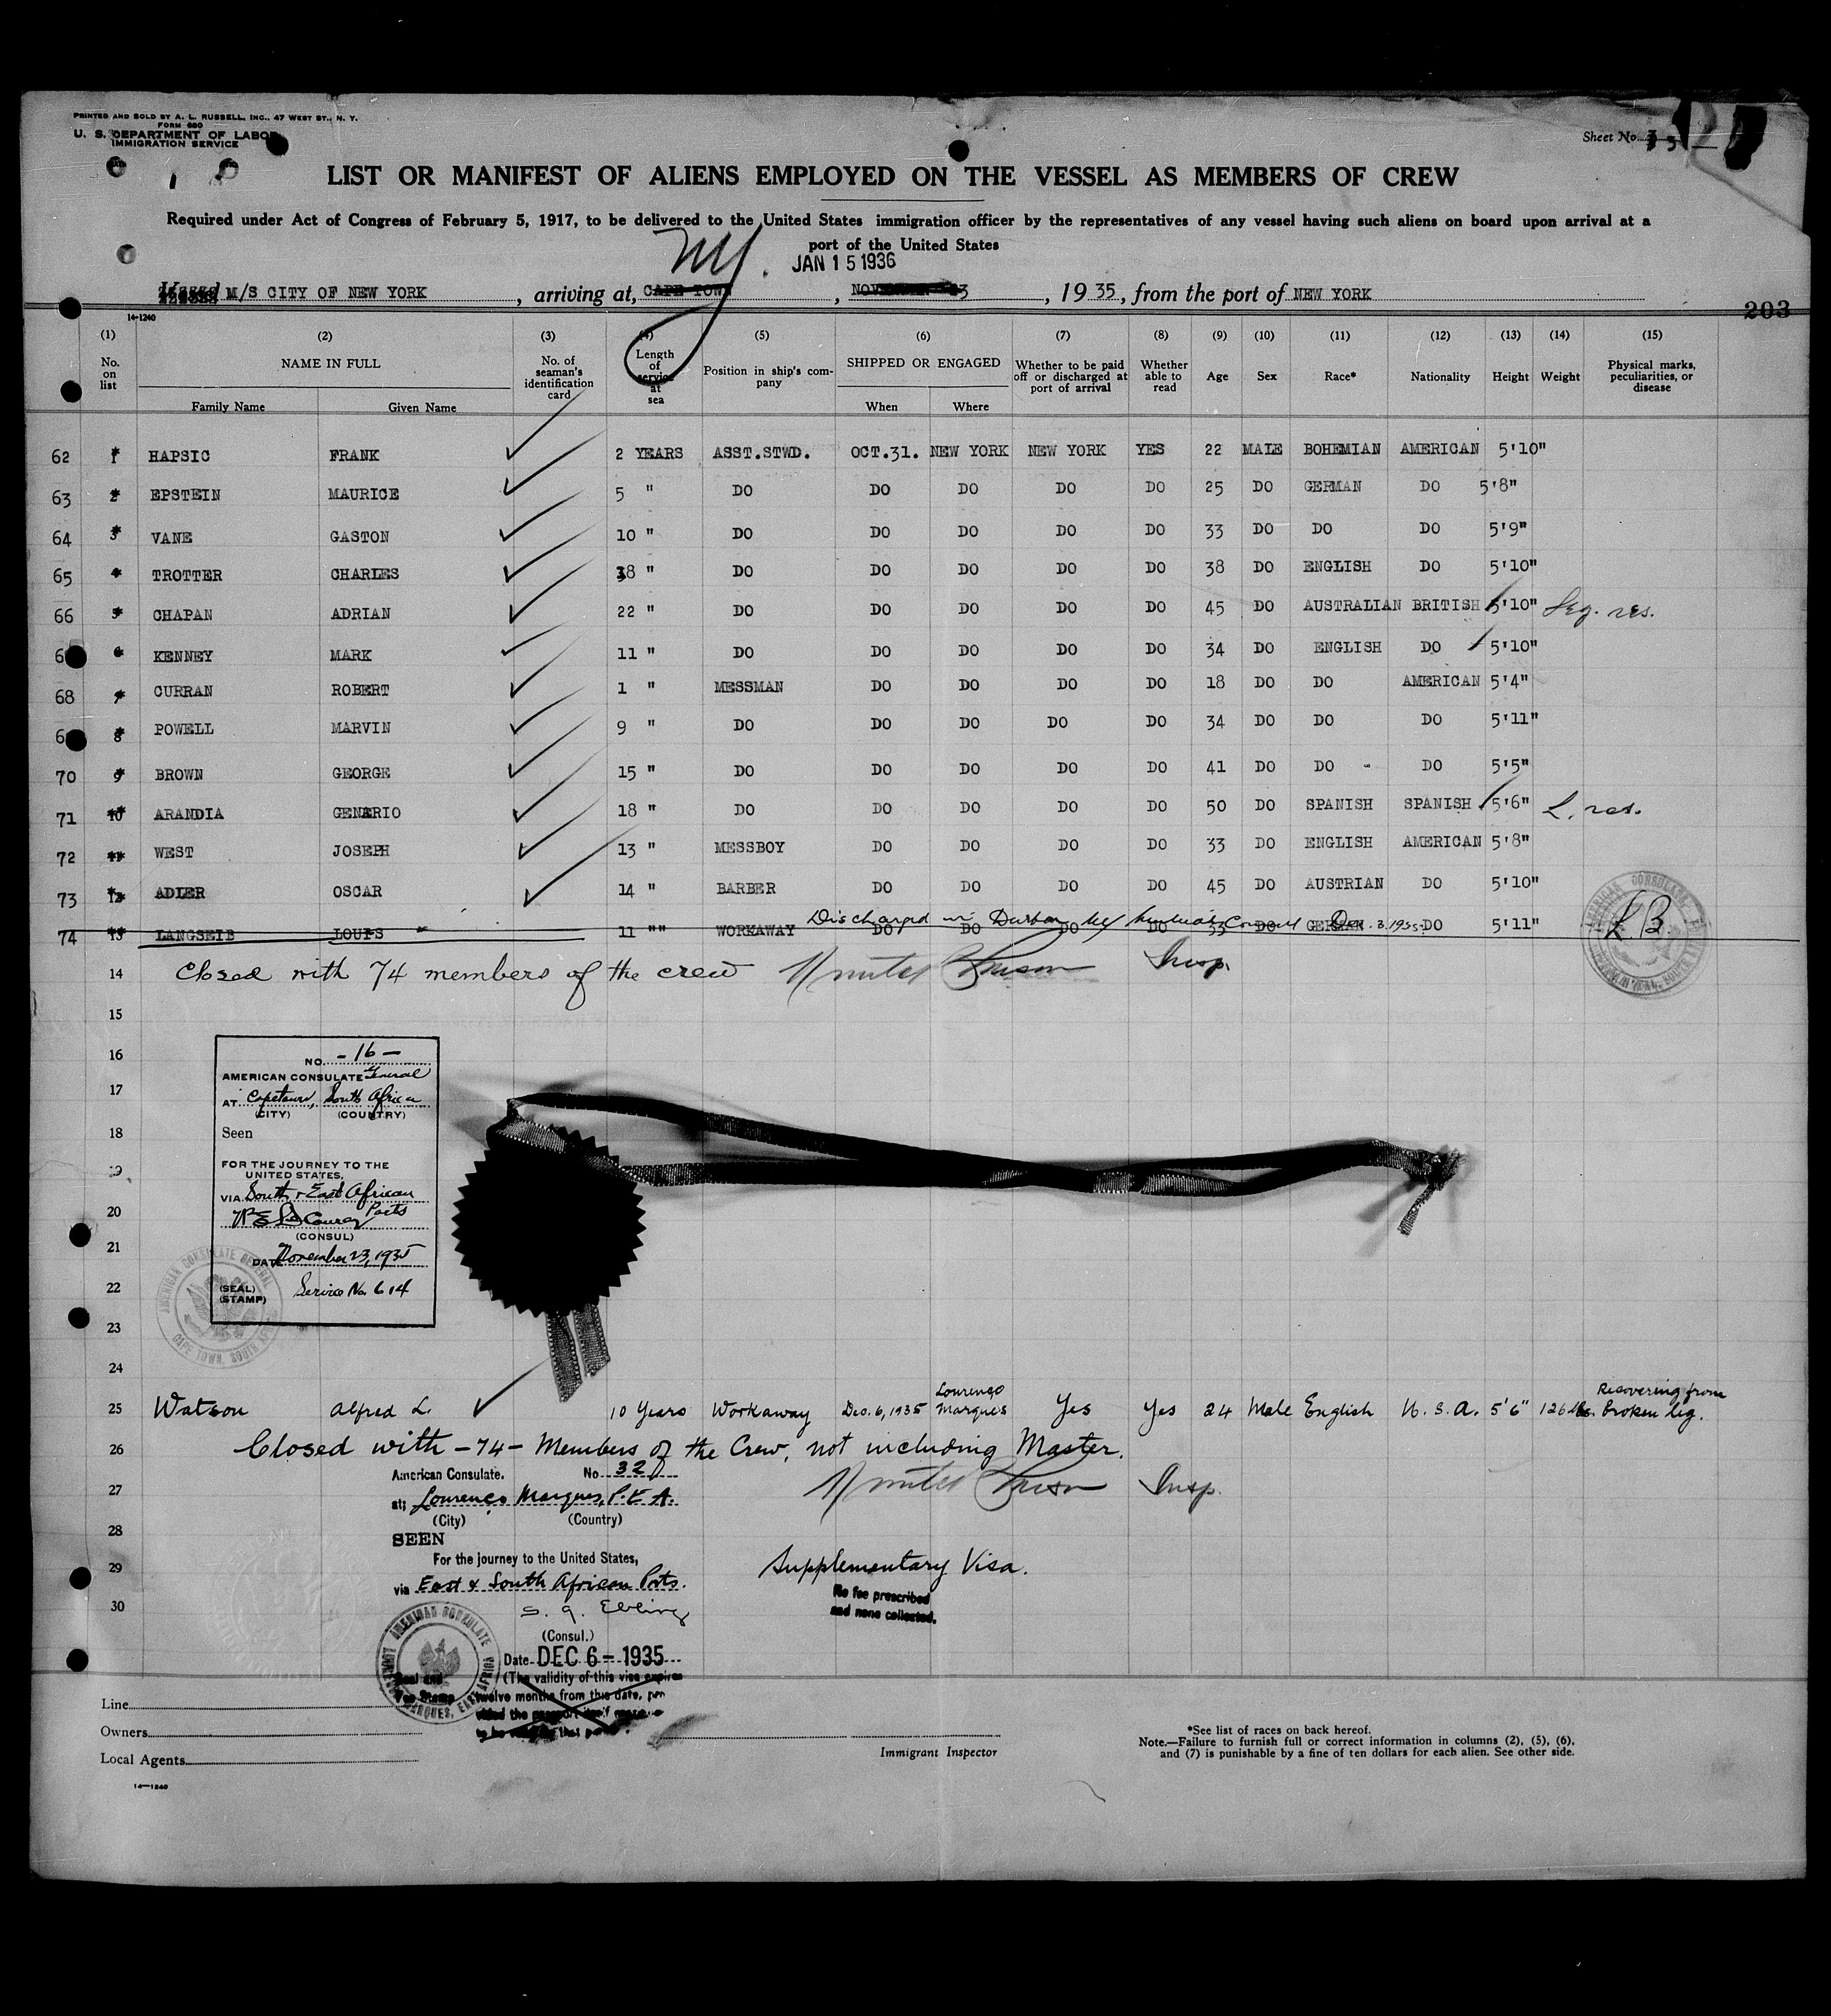 PRINTED AND SOLD BY A. L. RUSSELL, INC., 47 WEST ST., N. Y.
FORM 680
U. S. DEPARTMENT OF LABOR
IMMIGRATION SERVICE
Sheet No.
LIST OR MANIFEST OF ALIENS EMPLOYED ON THE VESSEL AS MEMBERS OF CREW
Required under Act of Congress of February 5, 1917, to be delivered to the United States immigration officer by the representatives of any vessel having such aliens on board upon arrival at a
port of the United States
NY.
JAN 15 1936
Vessel M/S CITY OF NEW YORK, arriving at, CAPE TOWN, 1935, from the port of NEW YORK
203
14-1240
(1) (2) (3) (4) (5) (6) (7) (8) (9) (10) (11) (12) (13) (14) (15)
No. on list NAME IN FULL Family Name Given Name No. of seaman's identification card Length of service at sea Position in ship's company SHIPPED OR ENGAGED When Where Whether to be paid off or discharged at port of arrival Whether able to read Age Sex Race* Nationality Height Weight Physical marks, peculiarities, or disease
62 1 HAPSIC FRANK 2 YEARS ASST.STWD. OCT.31. NEW YORK NEW YORK YES 22 MALE BOHEMIAN AMERICAN 5'10"
63 2 EPSTEIN MAURICE 5 " DO DO DO DO DO 25 DO GERMAN DO 5'8"
64 3 VANE GASTON 10 " DO DO DO DO DO 33 DO DO DO 5'9"
65 4 TROTTER CHARLES 18 " DO DO DO DO DO 38 DO ENGLISH DO 5'10"
66 5 CHAPAN ADRIAN 22 " DO DO DO DO DO 45 DO AUSTRALIAN BRITISH 5'10" Leg. res.
6 6 KENNEY MARK 11 " DO DO DO DO DO 34 DO ENGLISH DO 5'10"
68 7 CURRAN ROBERT 1 " MESSMAN DO DO DO DO 18 DO DO AMERICAN 5'4"
6 8 POWELL MARVIN 9 " DO DO DO DO DO 34 DO DO DO 5'11"
70 9 BROWN GEORGE 15 " DO DO DO DO DO 41 DO DO DO 5'5"
71 10 ARANDIA GENARIO 18 " DO DO DO DO DO 50 DO SPANISH SPANISH 5'6" L. res.
72 11 WEST JOSEPH 13 " MESSBOY DO DO DO DO 33 DO ENGLISH AMERICAN 5'8"
73 12 ADLER OSCAR 14 " BARBER DO DO DO DO 45 DO AUSTRIAN DO 5'10"
Discharged in Durban by American Consul Dec. 3. 1935.
74 13 LANGSEIB LOUIS 11 "" WORKAWAY DO DO DO DO 33 DO GERMAN DO 5'11" L.B.
14 Closed with 74 members of the crew Insp.
15
16
17
18
19
20
21
22
23
24
NO. -16-
AMERICAN CONSULATE General
AT Capetown, South Africa
(CITY) (COUNTRY)
Seen
FOR THE JOURNEY TO THE
UNITED STATES,
VIA South & East African
Ports
(CONSUL)
DATE November 23, 1935
(SEAL)
(STAMP)
Service No. 614
AMERICAN CONSULATE GENERAL
CAPE TOWN, SOUTH AFRICA
25 Watson Alfred L. 10 Years Workaway Dec. 6, 1935 Lourenço Marques Yes Yes 24 Male English U. S. A. 5'6" 126 lbs. Recovering from broken leg.
26 Closed with -74- Members of the Crew, not including Master.
27 Insp.
28
29
30
American Consulate. No. 32
at; Lourenço Marques, P.E.A.
(City) (Country)
SEEN
For the journey to the United States,
via East & South African Ports.
S. G. Ebling
(Consul.)
Date DEC 6 - 1935
(The validity of this visa expires
twelve months from this date, pro
vided the passport
to be that
AMERICAN CONSULATE
LOURENÇO MARQUES, EAST AFRICA
Supplementary Visa.
No fee prescribed
and none collected.
Line
Owners
Local Agents
14-1240
Immigrant Inspector
*See list of races on back hereof.
Note.—Failure to furnish full or correct information in columns (2), (5), (6),
and (7) is punishable by a fine of ten dollars for each alien. See other side.